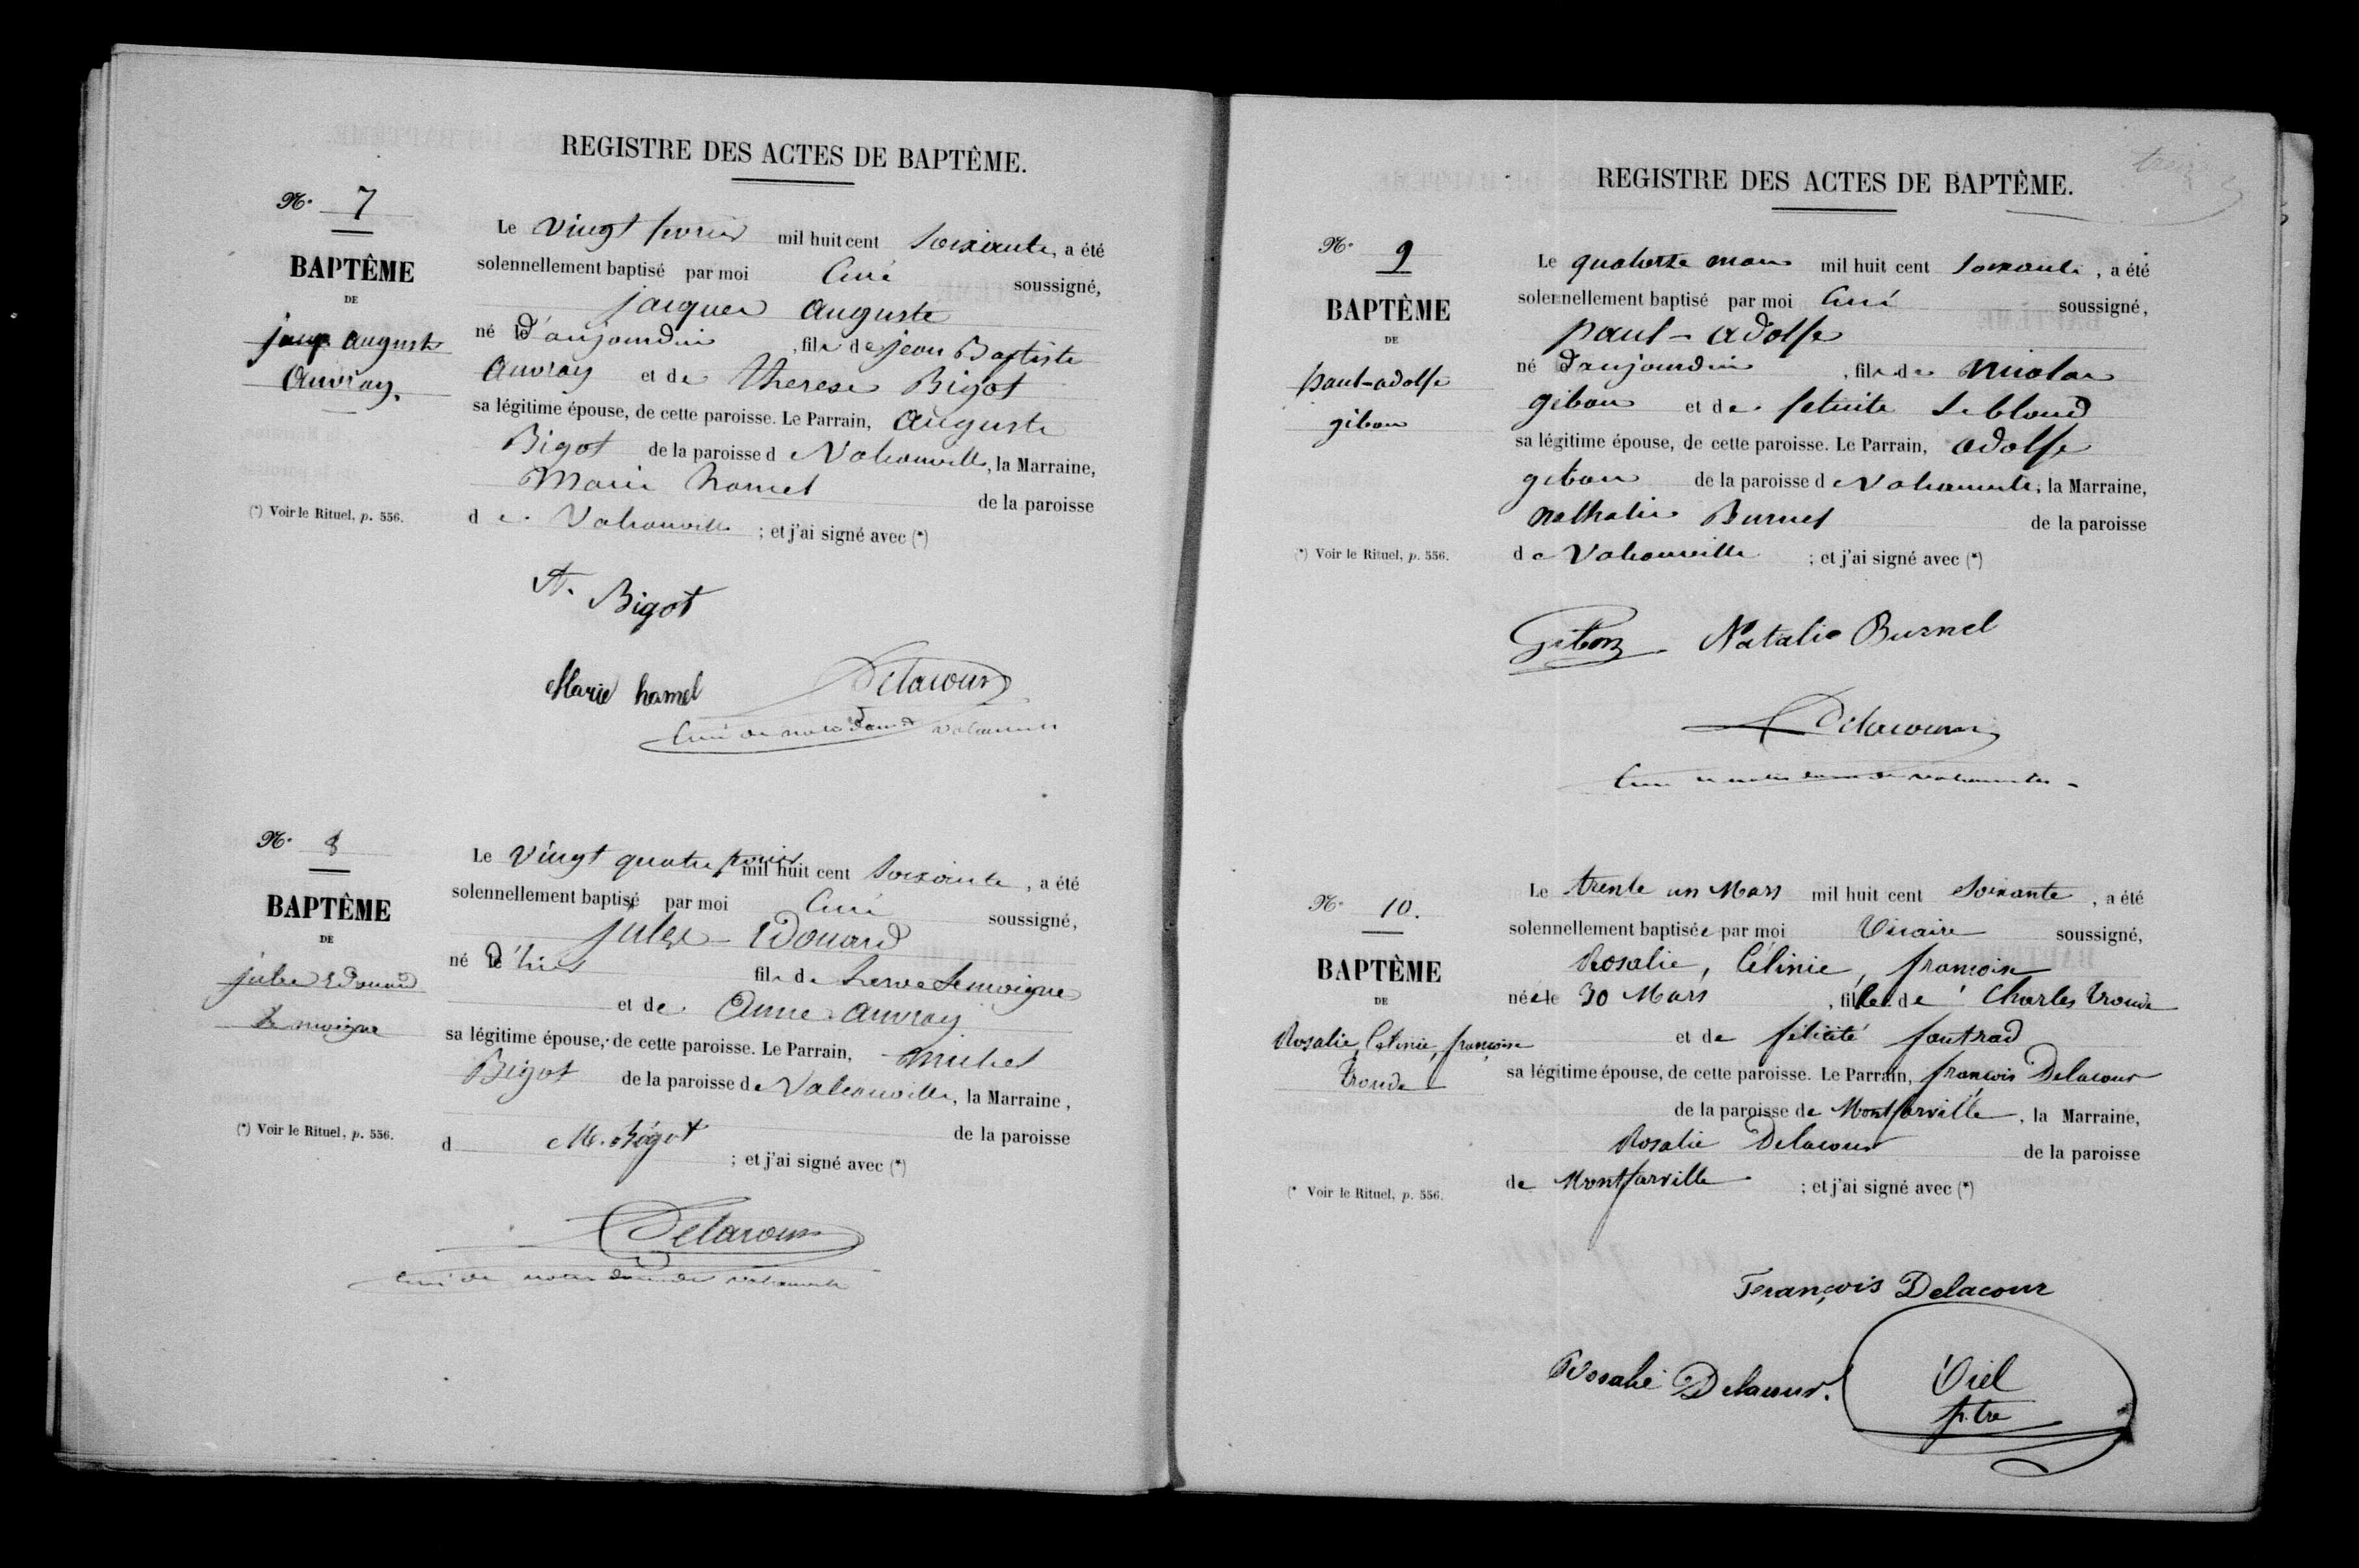 REGISTRE DES ACTES DE BAPTÊME.
N° 7
BAPTÊME
DE
auguste
Auvray,
(*) Voir le Rituel, p. 556.
Le vingt fevrier mil huit cent soixante, a été
solennellement baptisé par moi Curé soussigné,
jacques auguste
né le d'aujourdui, fils de jean Baptiste
Auvray et de therese Bigot
sa légitime épouse, de cette paroisse. Le Parrain, auguste
Bigot de la paroisse de Valcanville, la Marraine,
Marie hamel de la paroisse
de Valcanville ; et j'ai signé avec (*)
A. Bigot
Marie hamel
Delacour
Curé de notre dame de valcanville
N° 8
BAPTÊME
DE
jules Edouard
Le moigne
(*) Voir le Rituel, p. 556.
Le vingt quatre fevrier mil huit cent soixante, a été
solennellement baptisé par moi Curé soussigné,
jules - Edouard
né le d'hier fils de herve Lemoigne
et de Anne Auvray
sa légitime épouse, de cette paroisse. Le Parrain, Michel
Bigot de la paroisse de Valcanville, la Marraine,
de la paroisse
d M. Bigot ; et j'ai signé avec (*)
Delacour
Curé de notre dame de valcanville
REGISTRE DES ACTES DE BAPTÊME.
N° 9
BAPTÊME
DE
paul-adolfe
gibon
(*) Voir le Rituel, p. 556.
Le quatorze mars mil huit cent soixante, a été
solennellement baptisé par moi Curé soussigné,
paul - adolfe
né d'aujourdui, fils de Nicolas
gibon et de Leblond
sa légitime épouse, de cette paroisse. Le Parrain, adolfe
gibon de la paroisse de Valcanville, la Marraine,
nathalie Burnel de la paroisse
de Valcanville ; et j'ai signé avec (*)
Gibon Natalie Burnel
Delacour
Curé de notre dame de valcanville
N° 10.
BAPTÊME
DE
Rosalie, Célinie, françoise
Troude
(* Voir le Rituel, p. 556.
Le trente un Mars mil huit cent soixante, a été
solennellement baptisée par moi Vicaire soussigné,
Rosalie, Célinie, françoise
née le 30 Mars, fille de Charles Troude
et de félicité fautrad
sa légitime épouse, de cette paroisse. Le Parrain, françois Delacour
de la paroisse de Montfarville, la Marraine,
Rosalie Delacour de la paroisse
de Montfarville ; et j'ai signé avec (*)
François Delacour
Rosalie Delacour.
Viel
p.tre